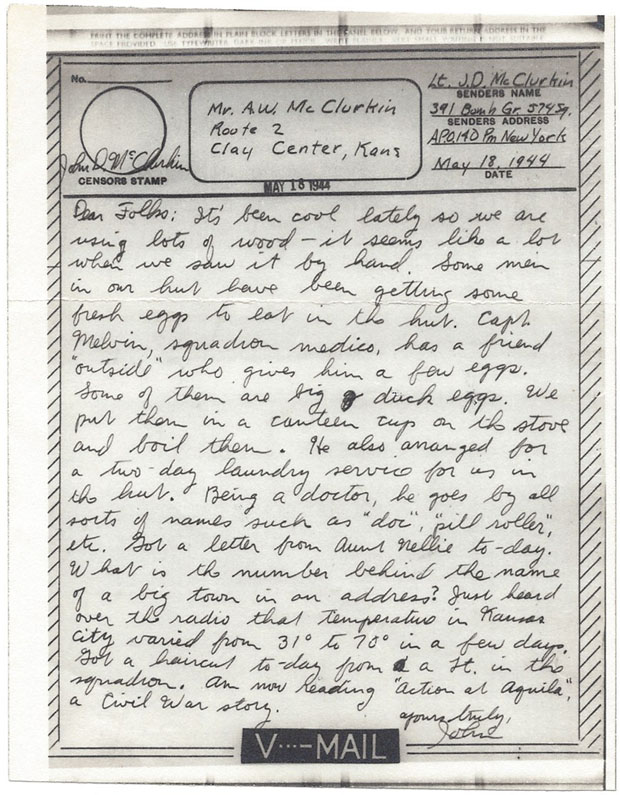 PRINT THE COMPLETE ADDRESS IN PLAIN BLOCK LETTERS IN THE PANEL BELOW, AND YOUR RETURN ADDRESS IN THE
SPACE PROVIDED. USE TYPEWRITER, DARK INK, OR PENCIL.
No.
John D. McClurkin
CENSORS STAMP
Mr. A.W. McClurkin
Route 2
Clay Center, Kans
Lt. J.D. McClurkin
SENDERS NAME
391 Bomb Gr. 574 Sq.
SENDERS ADDRESS
APO 140 Pm New York
May 18, 1944
DATE
MAY 18 1944
Dear Folks: It's been cool lately so we are
using lots of wood – it seems like a lot
when we saw it by hand. Some men
in our hut have been getting some
fresh eggs to eat in the hut. Capt
Melvin, squadron medico, has a friend
"outside" who gives him a few eggs.
Some of them are big duck eggs. We
put them in a canteen cup on the stove
and boil them. He also arranged for
a two-day laundry service for us in
the hut. Being a doctor, he goes by all
sorts of names such as "doc", "pill roller",
etc. Got a letter from Aunt Nellie to-day.
What is the number behind the name
of a big town in an address? Just heard
over the radio that temperature in Kansas
City varied from 31° to 70° in a few days.
Got a haircut to-day from a Lt. in the
squadron. Am now reading "Action at Aquila",
a Civil War story.
yours truly,
John
V···–MAIL